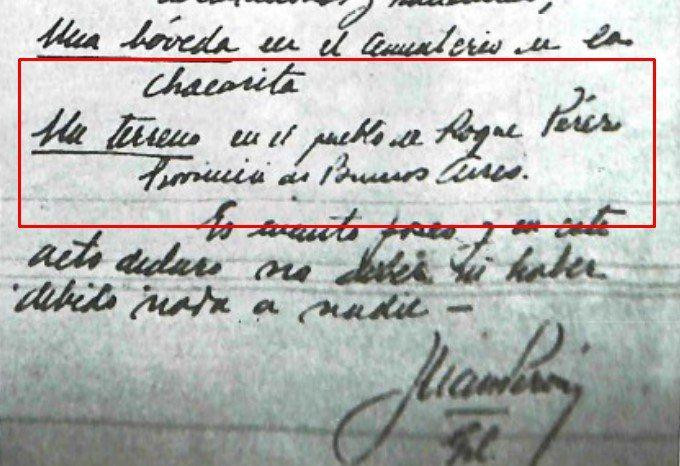 y nacionales,
Una bóveda en el cementerio de la
Chacarita
Un terreno en el pueblo de Roque Pérez
Provincia de Buenos Aires.
Es cuanto poseo y en este
acto declaro no deber ni haber
debido nada a nadie —
Juan Perón
Gral.